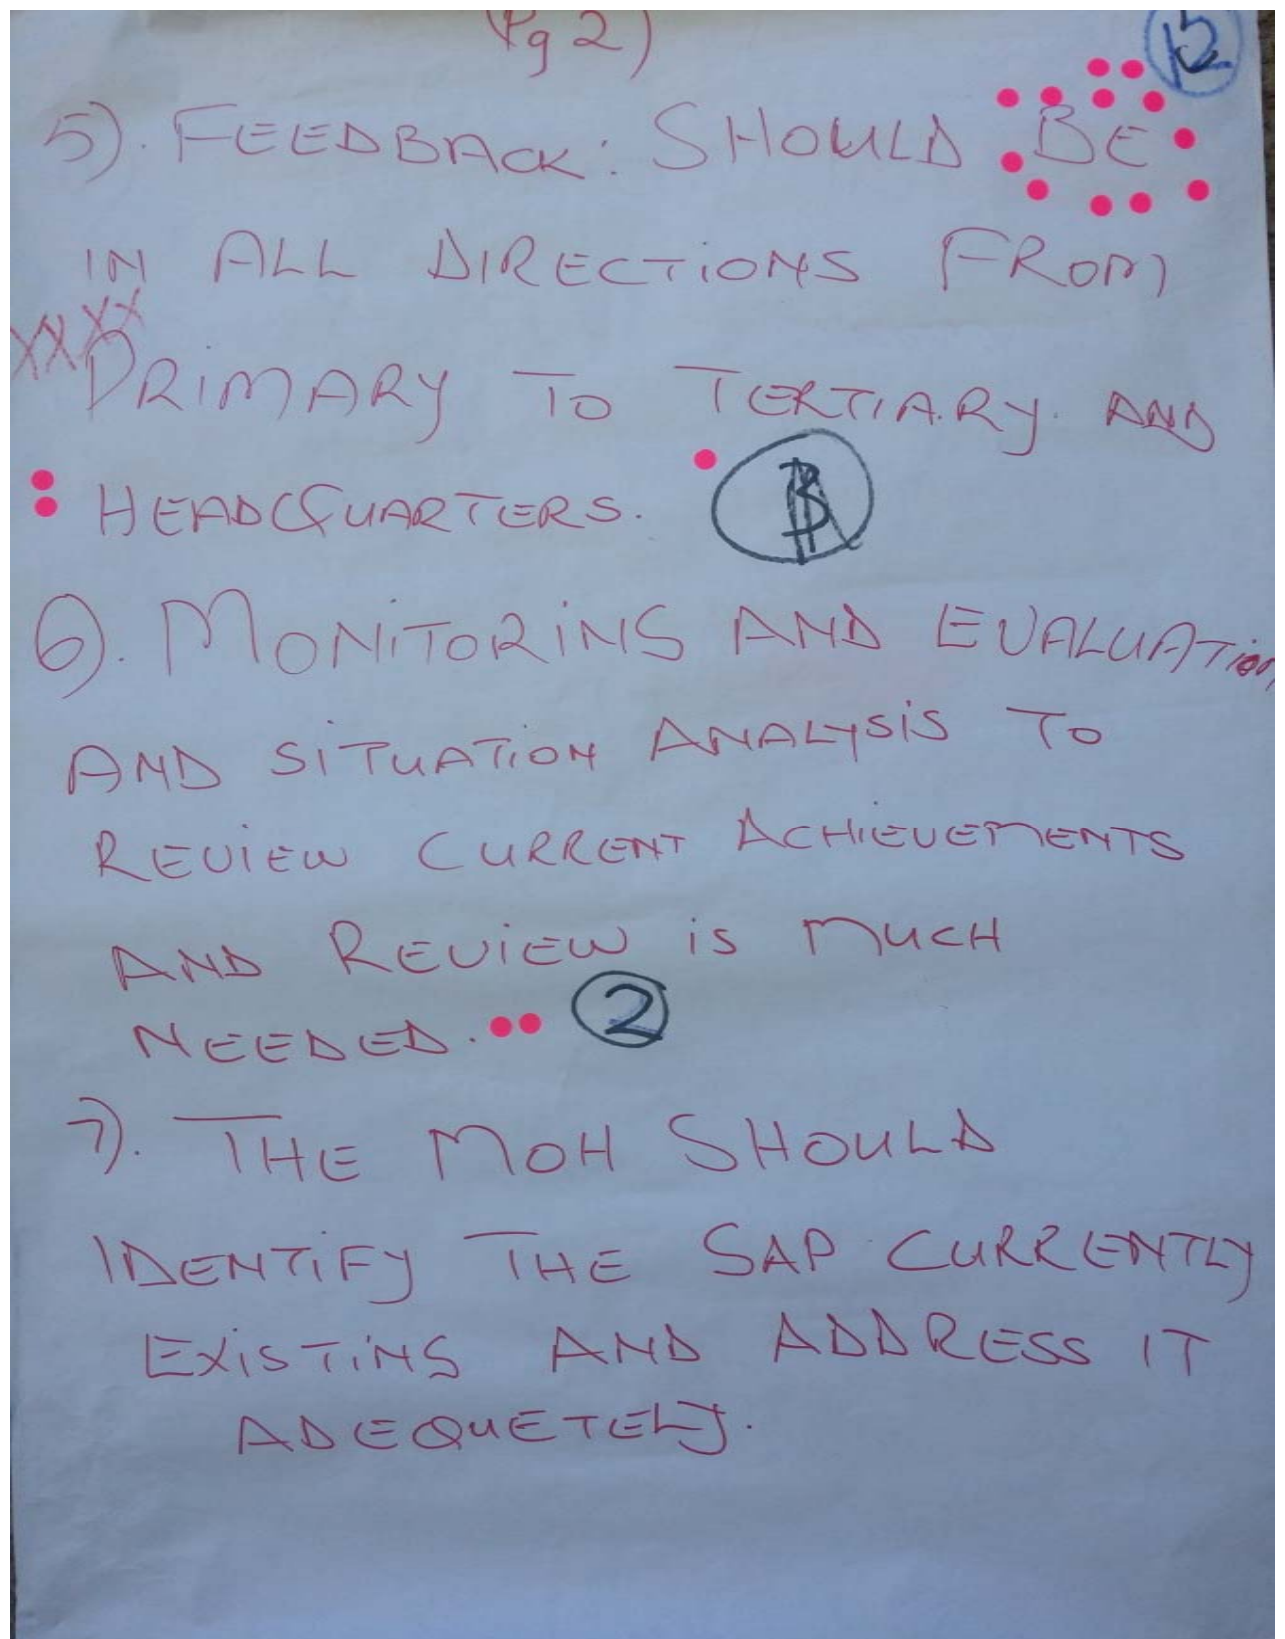 Pg 2)
5). FEEDBACK: SHOULD BE
IN ALL DIRECTIONS FROM
XXXX
PRIMARY TO TERTIARY. AND
HEADQUARTERS.
6). MONITORING AND EVALUATION
AND SITUATION ANALYSIS TO
REVIEW CURRENT ACHIEVEMENTS
AND REVIEW IS MUCH
NEEDED. 2
7). THE MOH SHOULD
IDENTIFY THE SAP CURRENTLY
EXISTING AND ADDRESS IT
ADEQUETELY.